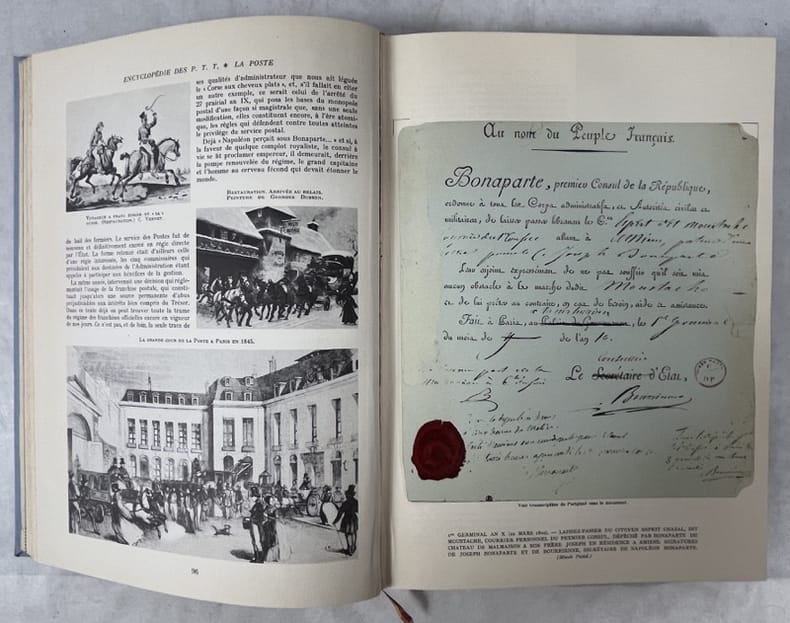 ENCYCLOPÉDIE DES P. T. T. ★ LA POSTE
ses qualités d'administrateur que nous ait léguée
le « Corse aux cheveux plats », et, s'il fallait en citer
un autre exemple, ce serait celui de l'arrêté du
27 prairial an IX, qui posa les bases du monopole
postal d'une façon si magistrale que, sans une seule
modification, elles constituent encore, à l'ère atomi-
que, les règles qui défendent contre toutes atteintes
le privilège du service postal.
Déjà « Napoléon perçait sous Bonaparte... » et si, à
la faveur de quelque complot royaliste, le consul à
vie se fit proclamer empereur, il demeurait, derrière
la pompe renouvelée du régime, le grand capitaine
et l'homme au cerveau fécond qui devait étonner le
monde.
RESTAURATION. ARRIVÉE AU RELAIS.
PEINTURE DE GEORGES DUBSEN.
(RESTAURATION.) C. VERNET.
du bail des fermiers. Le service des Postes fut de
nouveau et définitivement exercé en régie directe
par l'État. La forme retenue était d'ailleurs celle
d'une régie intéressée, les cinq commissaires qui
présidaient aux destinées de l'Administration étant
appelés à participer aux bénéfices de la gestion.
La même année, intervenait une décision qui régle-
mentait l'usage de la franchise postale, qui consti-
tuait jusqu'alors une source permanente d'abus
préjudiciables aux intérêts bien compris du Trésor.
Dans ce texte déjà on peut trouver toute la trame
du régime des franchises officielles encore en vigueur
de nos jours. Ce n'est pas, et de loin, la seule trace de
LA GRANDE COUR DE LA POSTE A PARIS EN 1845.
96
Au nom du Peuple Français.
Bonaparte, premier Consul de la République,
ordonne à tous les Corps administratifs, et Autorités civiles et
militaires, de laisser passer librement le C.en Esprit dit Moustache
allant à Amiens,
Joseph Bonaparte
Leur enjoint expressément de ne pas souffrir qu'il soit mis
aucun obstacle à la marche dudit Moustache
et de lui prêter au contraire, en cas de besoin, aide et assistance.
Fait à Paris, au Palais du Gouvernement, le 1er Germinal
du mois de de l'an 10.
Le Secrétaire d'État,
Bourrienne
Voir transcription de l'original sous le document.
1er GERMINAL AN X (22 MARS 1802). — LAISSEZ-PASSER DU CITOYEN ESPRIT CHAZAL, DIT
MOUSTACHE, COURRIER PERSONNEL DU PREMIER CONSUL, DÉPÊCHÉ PAR BONAPARTE DU
CHATEAU DE MALMAISON A SON FRÈRE JOSEPH EN RÉSIDENCE A AMIENS. SIGNATURES
DE JOSEPH BONAPARTE ET DE BOURRIENNE, SECRÉTAIRE DE NAPOLÉON BONAPARTE.
(Musée Postal.)